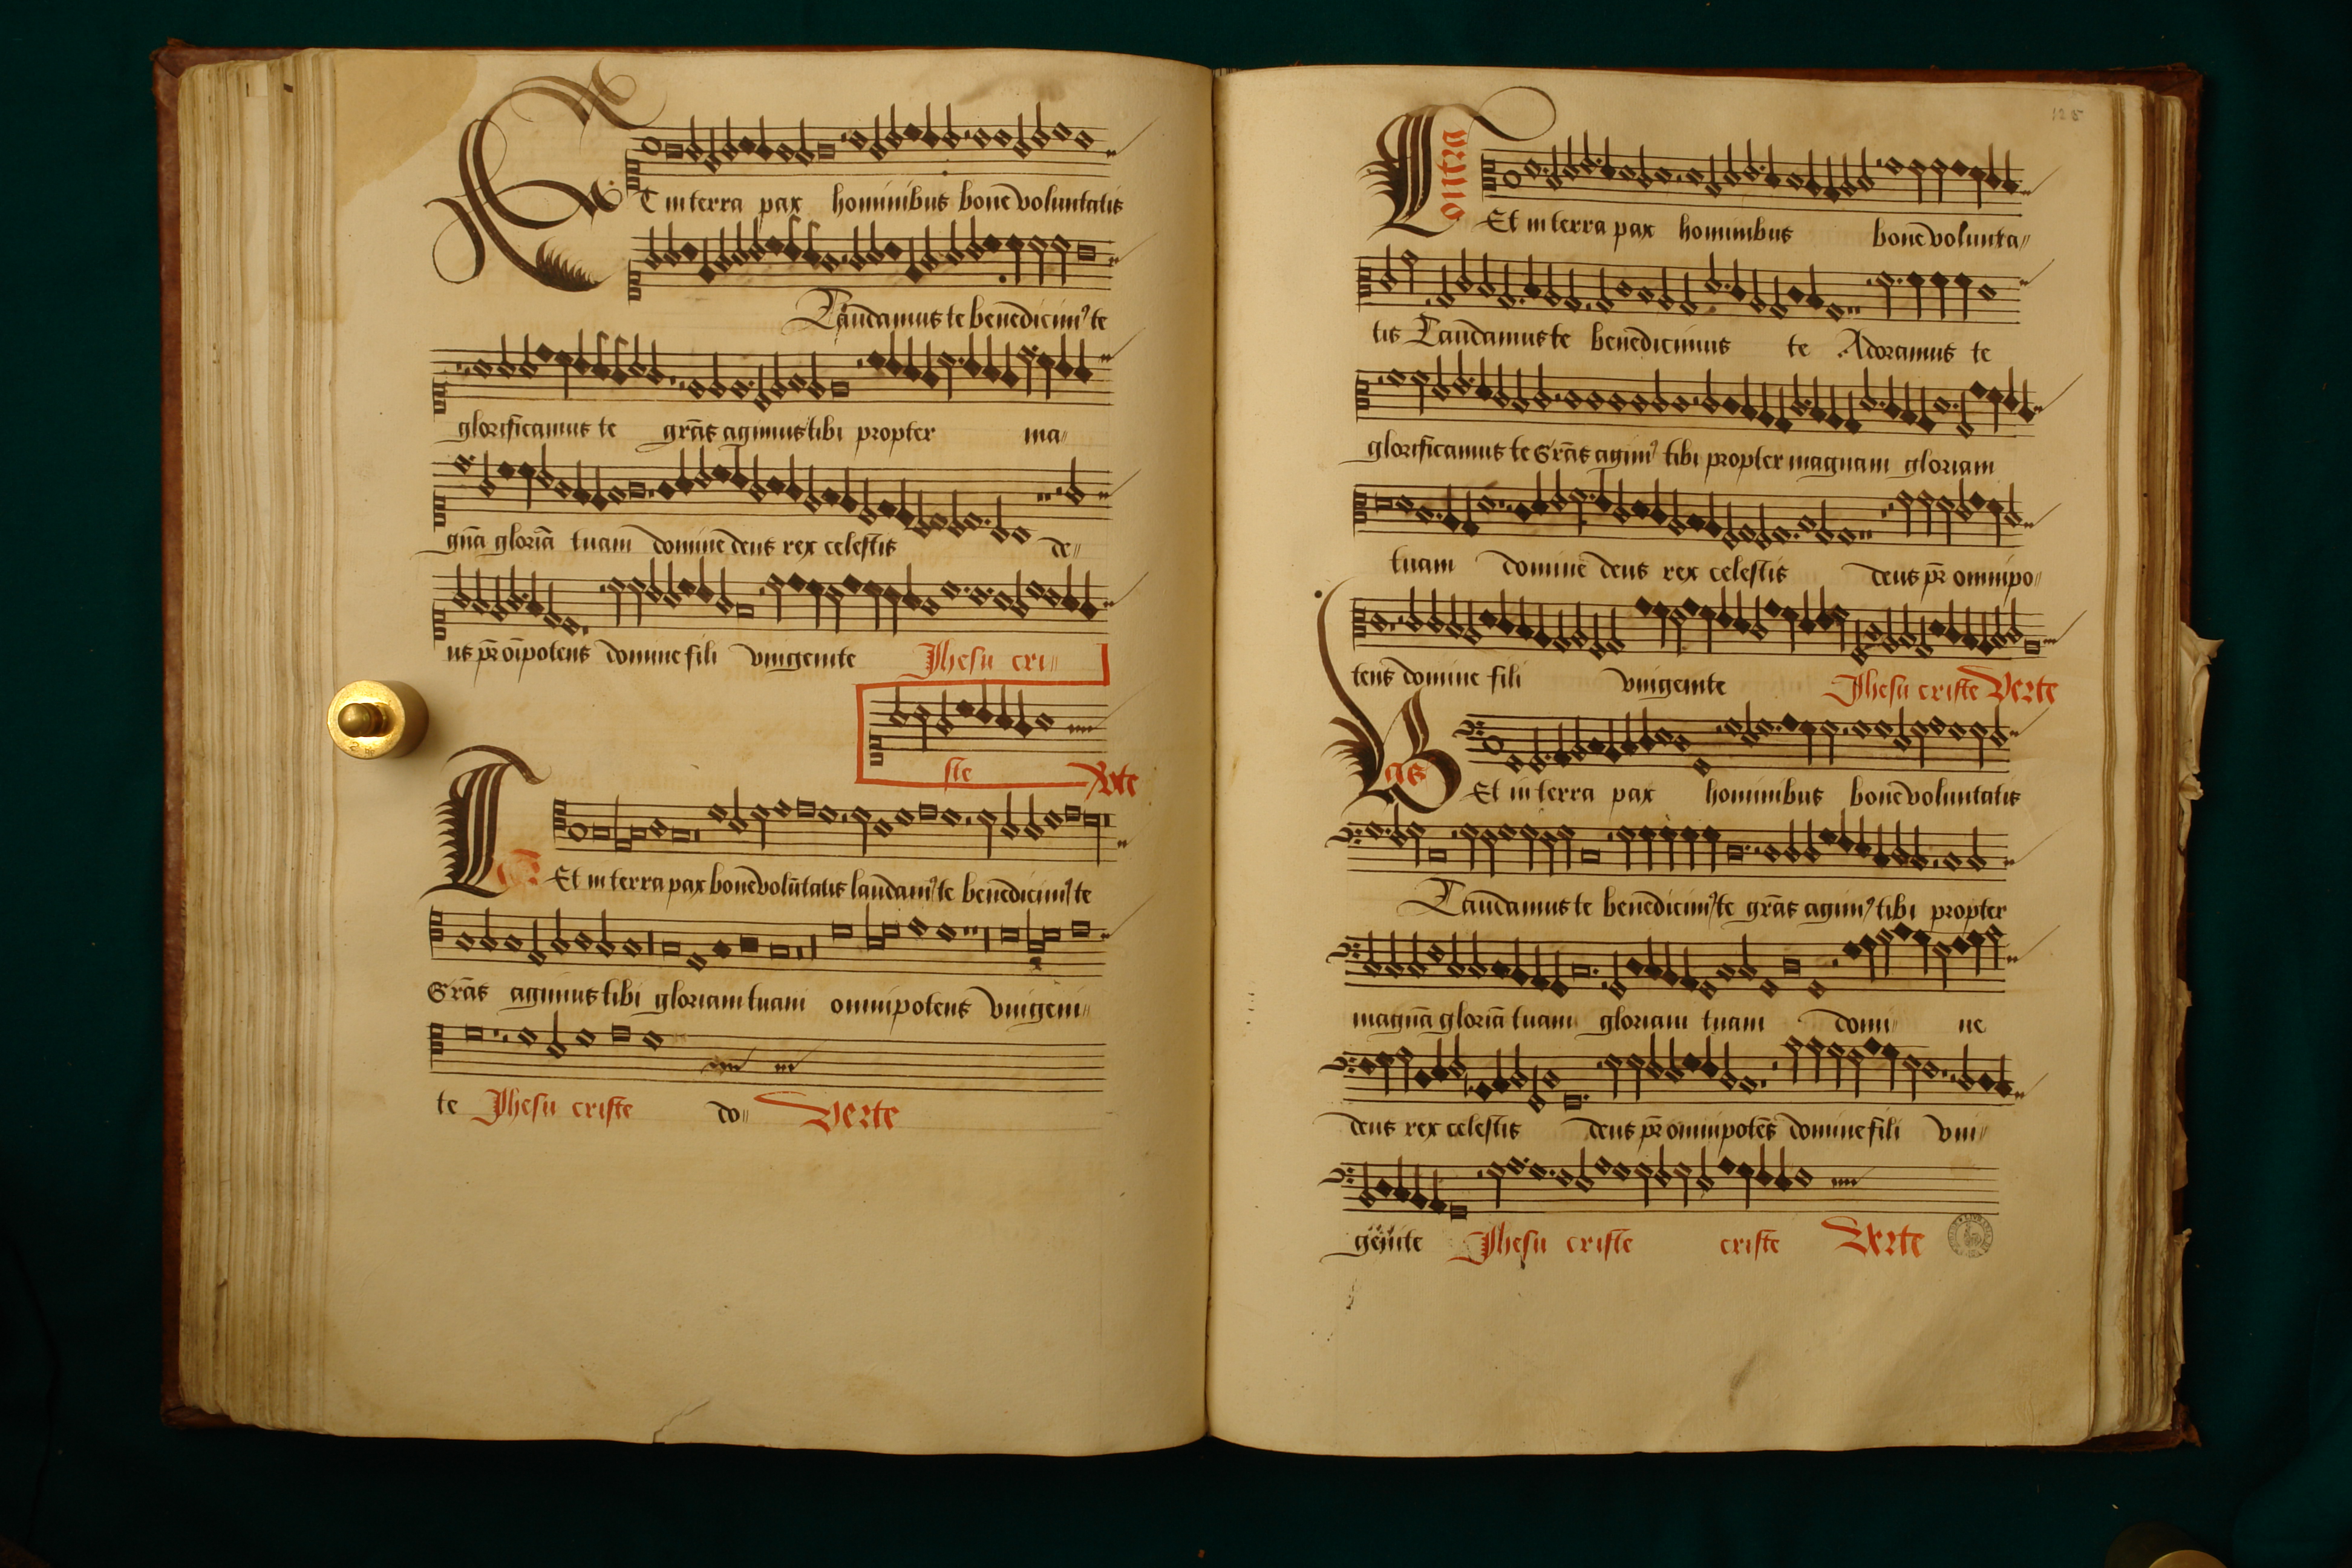 ET in terra pax hominibus bone voluntatis
Laudamus te benedicim9 te
glorificamus te grās agimus tibi propter ma〃
gnā gloriā tuam domine deus rex celestis de〃
us pr̄ oīpotens domine fili vnigenite Jhesu cri〃
ste Vͦte
Te Et in terra pax bone volūtatis laudam9 te benedicim9 te
Grās agimus tibi gloriam tuam omnipotens vnigeni〃
te Jhesu criste do〃 Verte
125
Contra Et in terra pax hominibus bone volunta〃
tis Laudamus te benedicimus te Adoramus te
glorificamus te Grās agim9 tibi propter magnam gloriam
tuam domine deus rex celestis deus pr̄ omnipo〃
tens domine fili vnigenite Jhesu criste Verte
Bas Et in terra pax hominibus bone voluntatis
Laudamus te benedicim9 te grās agim9 tibi propter
magnā gloriā tuam gloriam tuam domi〃 ne
deus rex celestis deus pr̄ omnipotēs domine fili vni〃
genite Jhesu criste criste Verte